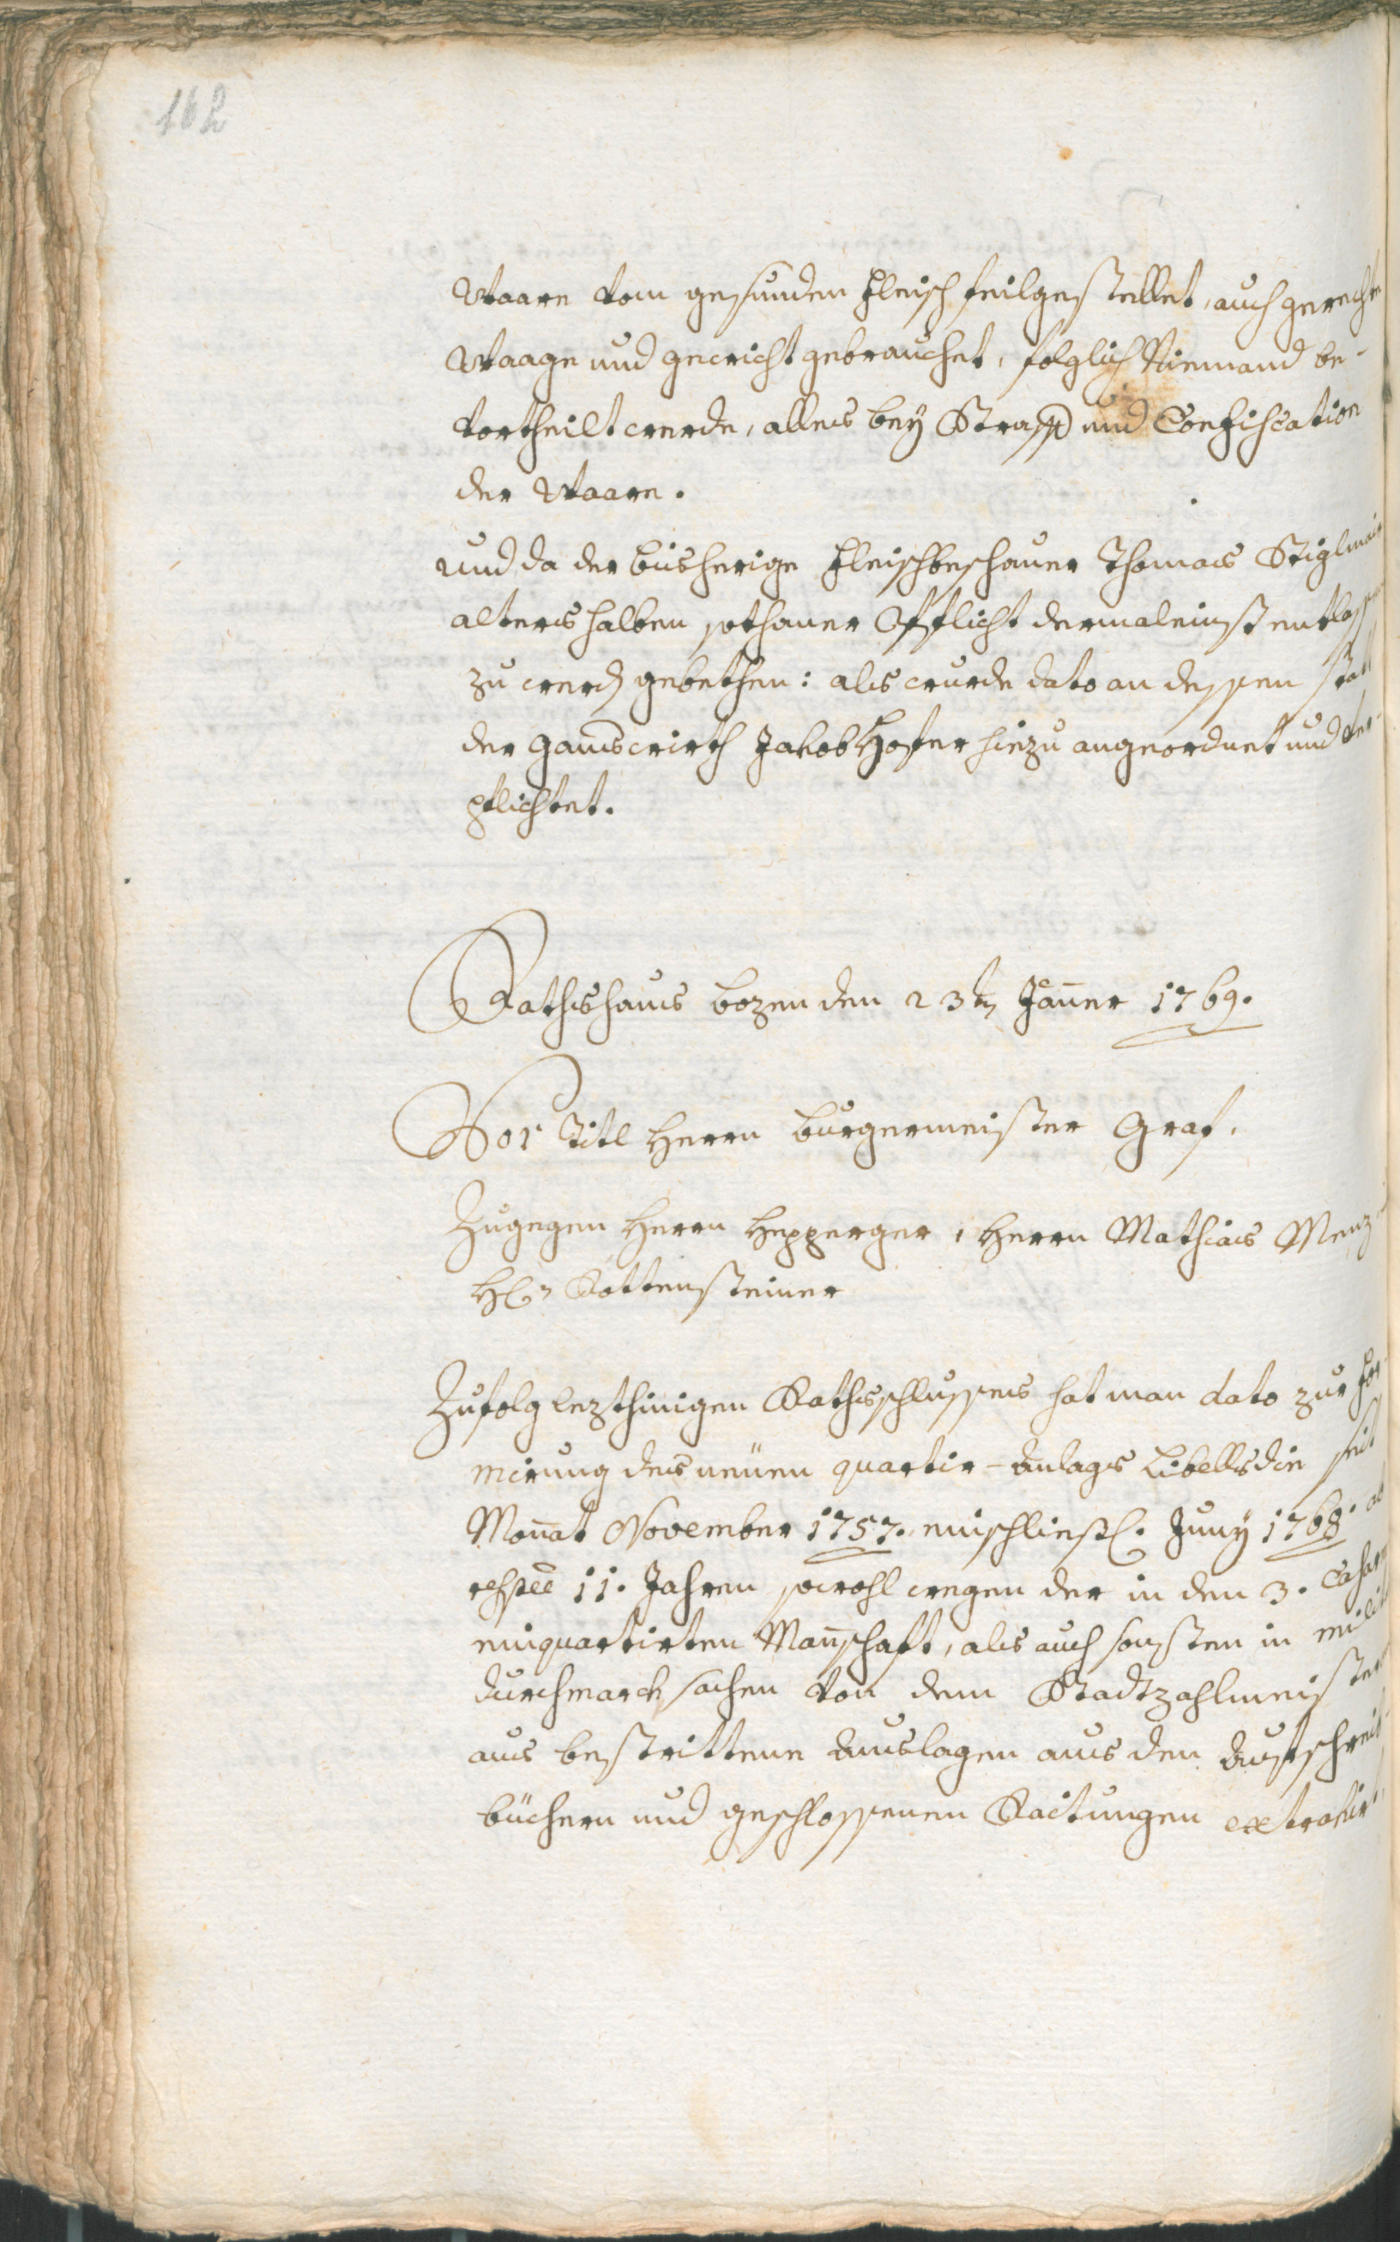 162
Waare vom gesunden Fleisch feilgestellet, auch gerechte
Waage und gewicht gebrauchet, folglich Niemand be-
vortheilt werde, alles bey Straff und Confiscation
der Waare.
und da der bisherige Fleischbeschauer Thomas Stiglmair
alters halben sothaner Pflicht dermaleinst entlassen
zu werden gebethen: als wurde dato an dessen statt
der ganswirth Jakob Hofer hiezu angeordnet und ver-
pflichtet.
Rathshaus bozen den 23ten Jäner 1769.
Vor Titl Herrn burgermeister Graf.
Zugegen Herrn Hepperger, Herrn Mathias Menz
H: Rottensteiner
Zufolg lezthinigen Rathsschlusses hat man dato zur for-
mirung des neuen quartir-anlags Libells die seit
Monat November 1757. einschliesl. Juny 1768. als
respve 11. Jahren sowohl wegen der in den 3. Casarm
einquartirten Manschaft, als auch sonsten in milit
durchmarch sachen von dem Stadtzahlmeister
aus bestrittene auslagen aus den aufschreib-
büchern und geschlossenen Raitungen extrahir